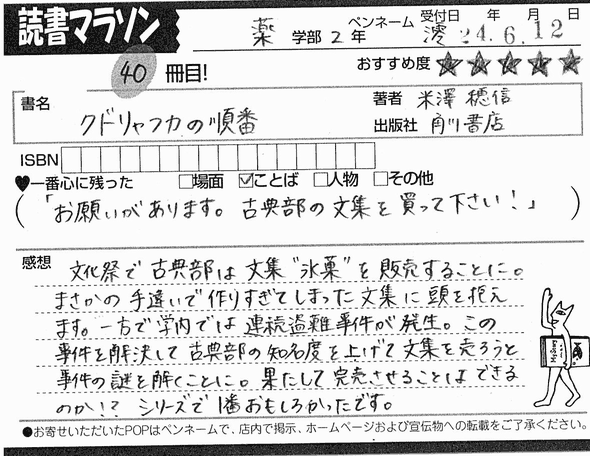 読書マラソン
薬 学部 2 年 ペンネーム 澪 受付日 24 年 6 月 12 日
40 冊目!
おすすめ度 ★★★★★
書名 クドリャフカの順番
著者 米澤 穂信
出版社 角川書店
ISBN
♥一番心に残った □場面 ☑ことば □人物 □その他
(「お願いがあります。古典部の文集を買って下さい!」)
感想
文化祭で古典部は文集"氷菓"を販売することに。
まさかの手違いで作りすぎてしまった文集に頭を抱え
ます。一方で学内では連続盗難事件が発生。この
事件を解決して古典部の知名度を上げて文集を売ろうと
事件の謎を解くことに。果たして完売させることはできる
のか!? シリーズで1番おもしろかったです。
●お寄せいただいたPOPはペンネームで、店内で掲示、ホームページおよび宣伝物への転載をご了承ください。